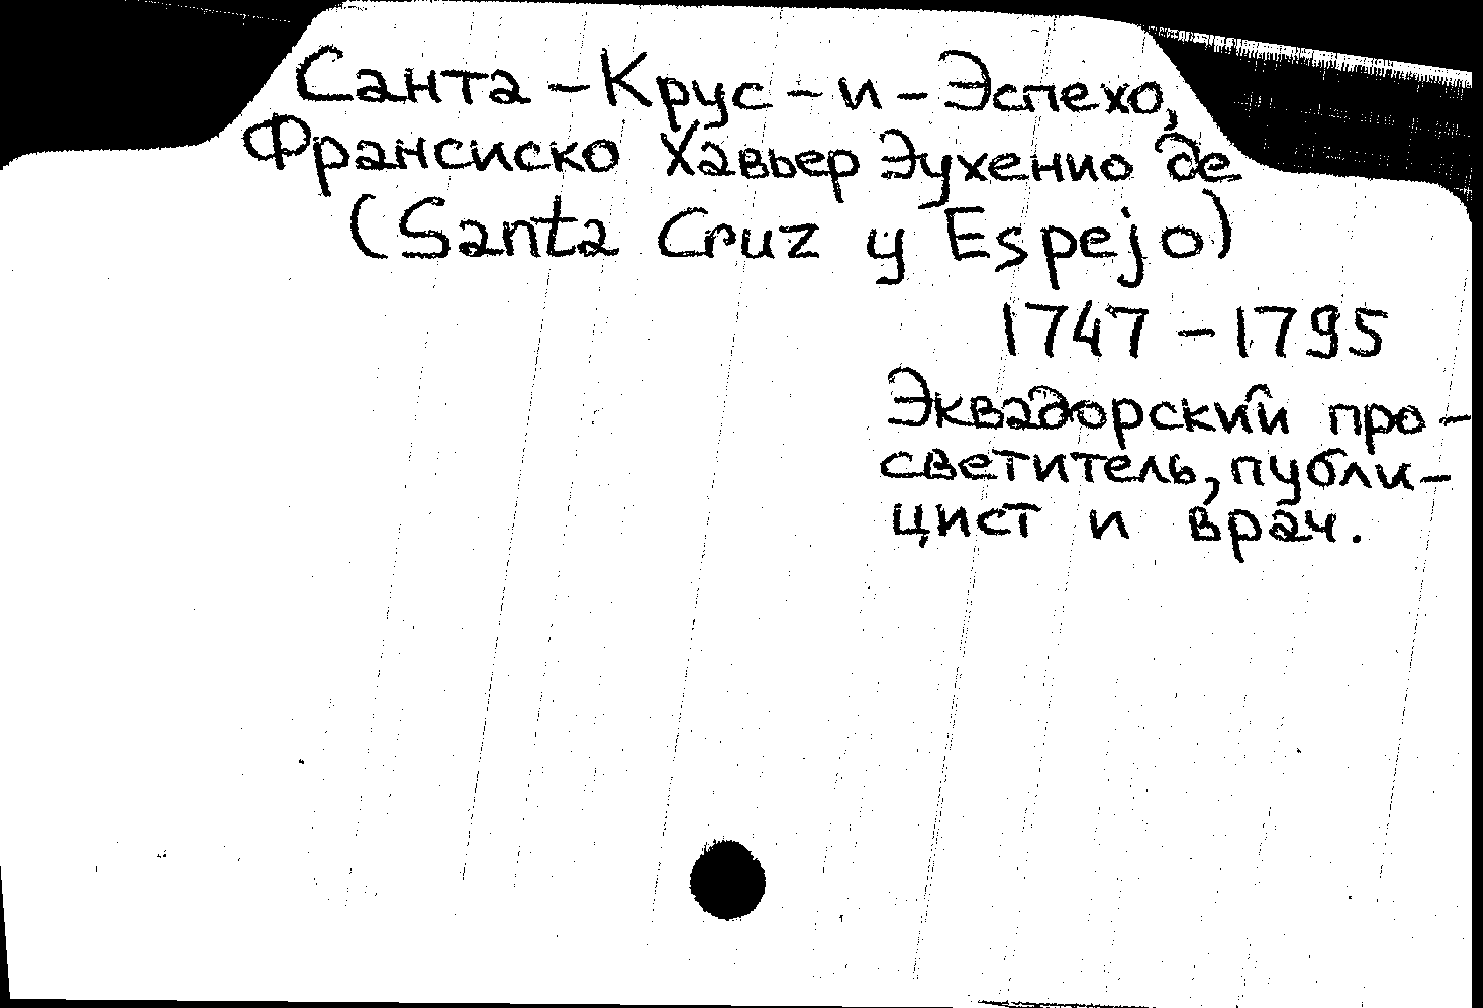 Санта-Крус-и-Эспехо,
Франсиско Хавьер Эухенио де
(Santa Cruz y Espejo)
1747-1795
Эквадорский про-
светитель, публи-
цист и врач.